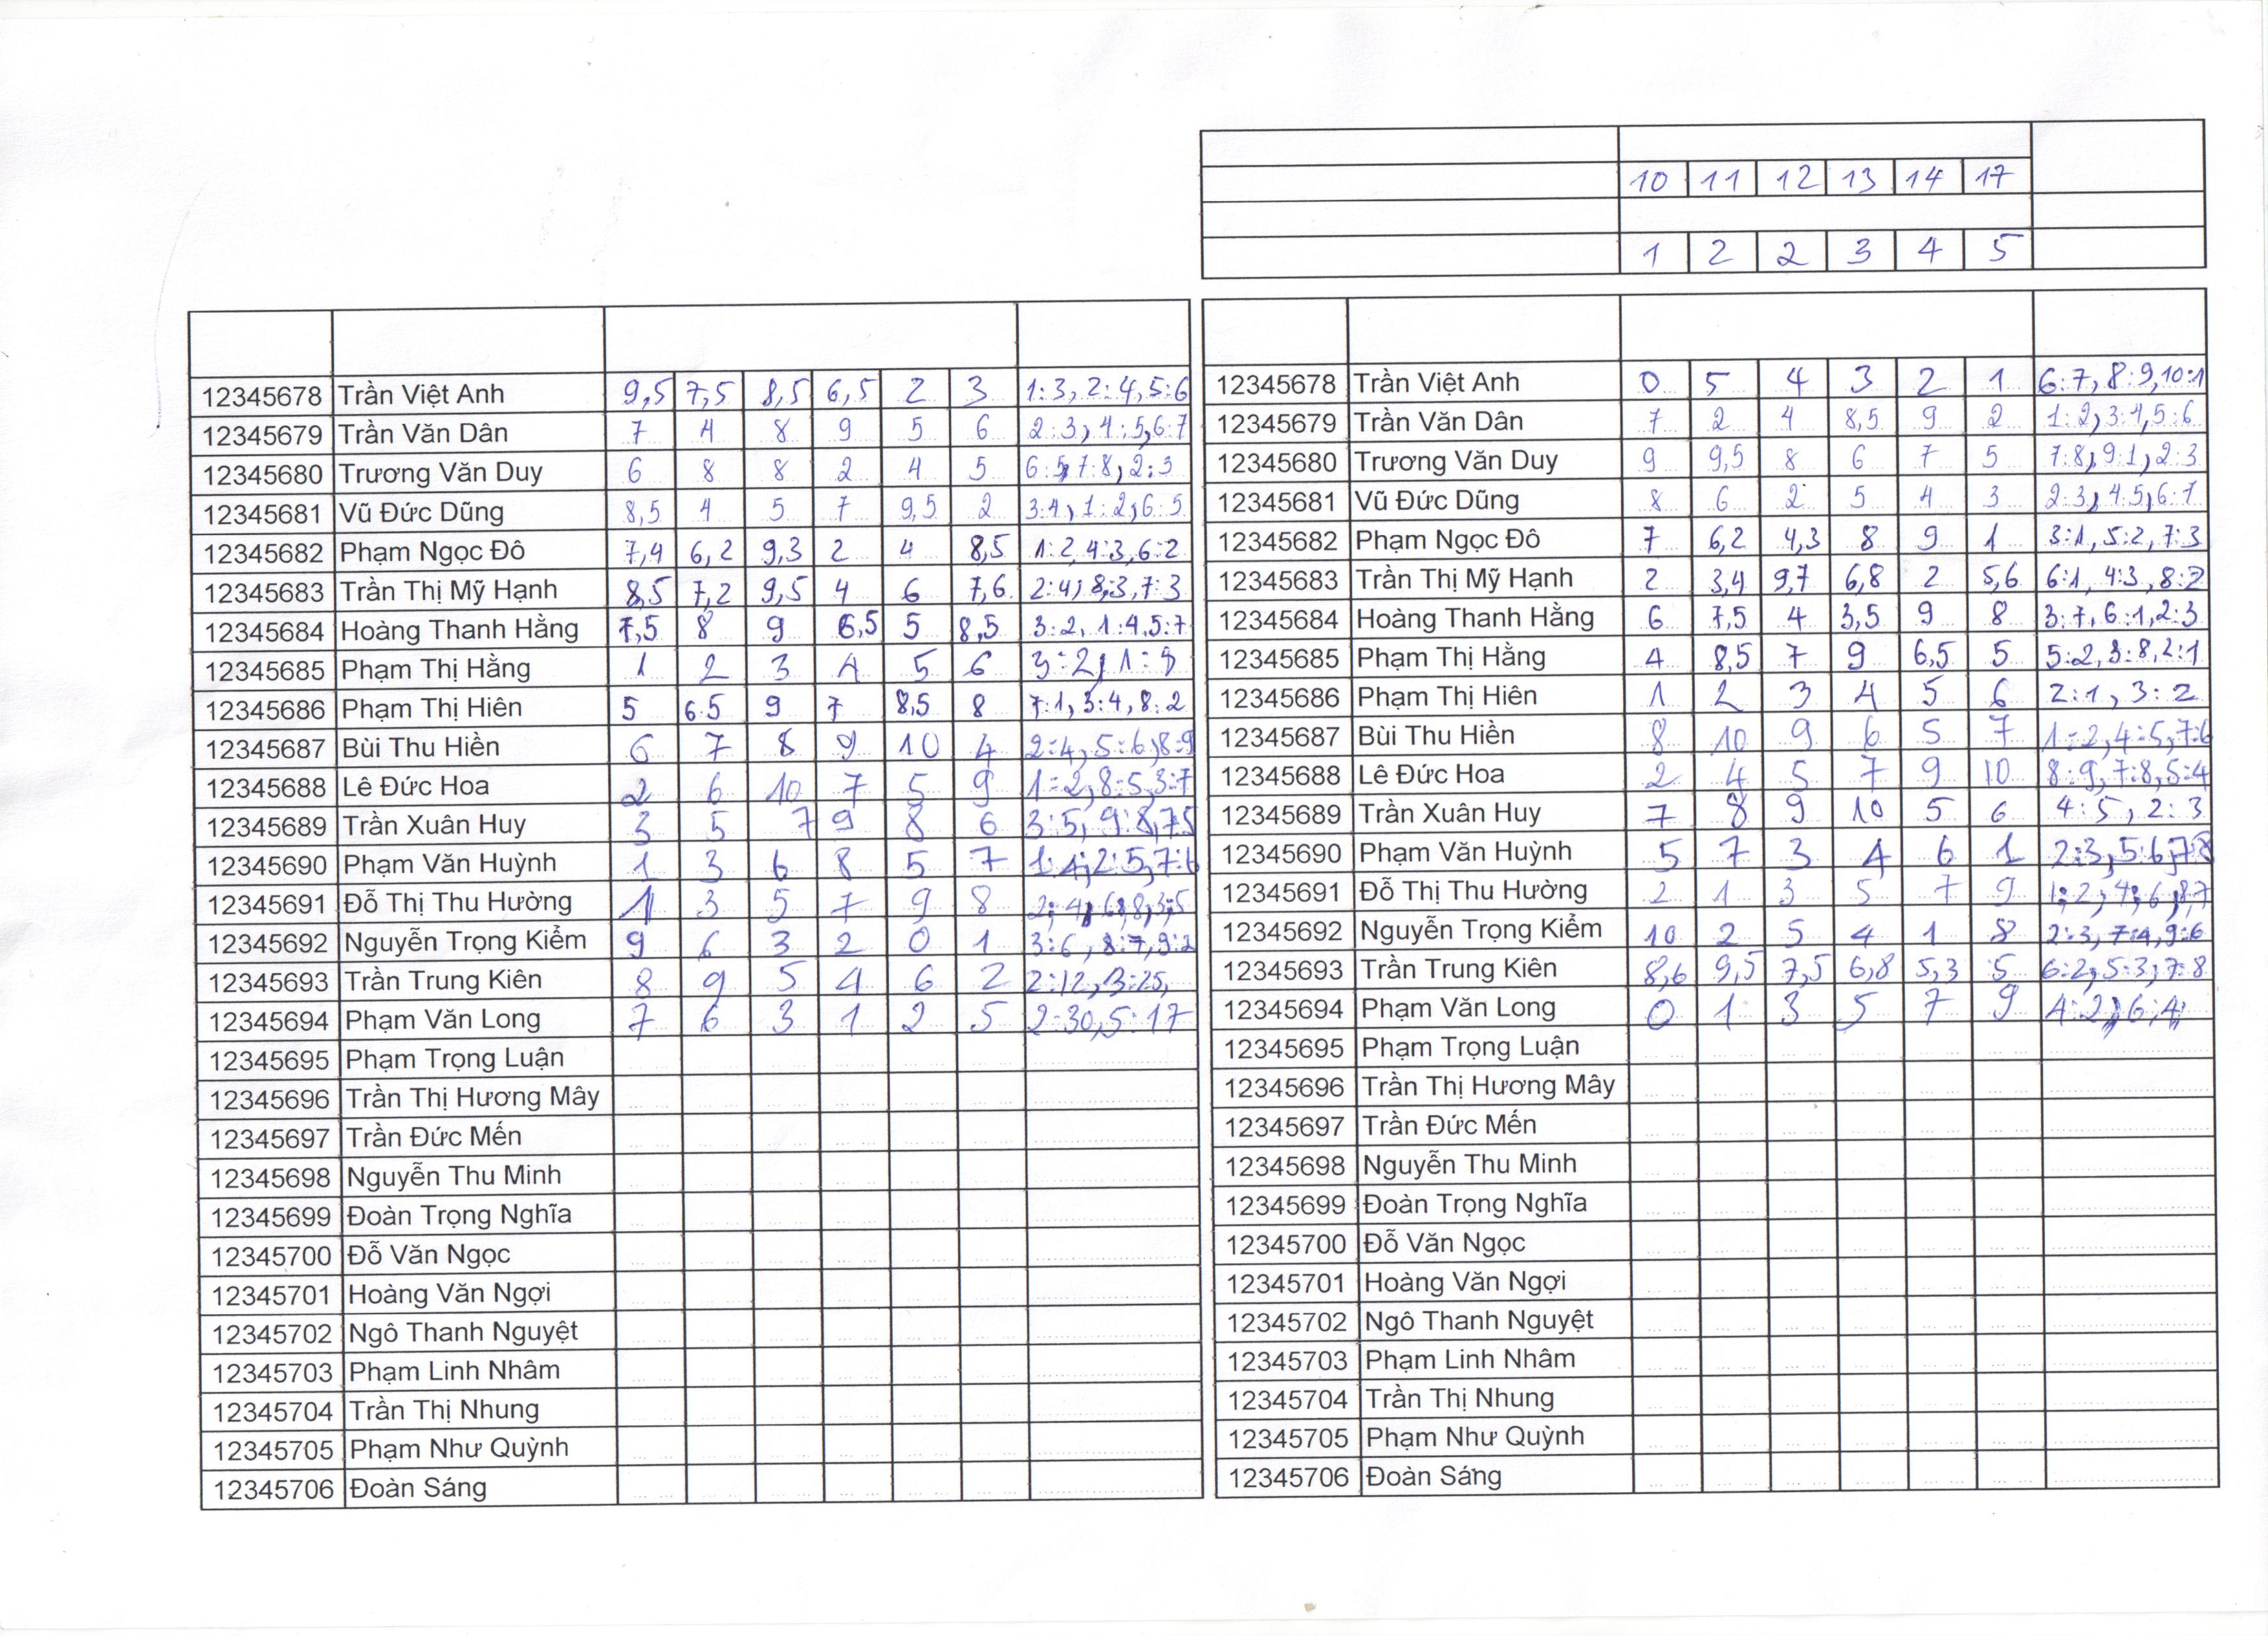 10 11 12 13 14 17
1 2 2 3 4 5
12345678 Trần Việt Anh 9,5 7,5 8,5 6,5 2 3 1:3, 2:4, 5:6
12345679 Trần Văn Dân 7 4 8 9 5 6 2:3, 4:5, 6:7
12345680 Trương Văn Duy 6 8 8 2 4 5 6:5, 7:8, 2:3
12345681 Vũ Đức Dũng 8,5 4 5 7 9,5 2 3:4, 1:2, 6:5
12345682 Phạm Ngọc Đô 7,4 6,2 9,3 2 4 8,5 1:2, 4:3, 6:2
12345683 Trần Thị Mỹ Hạnh 8,5 7,2 9,5 4 6 7,6 2:4, 8:3, 7:3
12345684 Hoàng Thanh Hằng 7,5 8 9 6,5 5 8,5 3:2, 1:4, 5:7
12345685 Phạm Thị Hằng 1 2 3 4 5 6 3:2, 1:
12345686 Phạm Thị Hiên 5 6.5 9 7 8,5 8 7:1, 3:4, 8:2
12345687 Bùi Thu Hiền 6 7 8 9 10 4 2:4, 5:6, 8:9
12345688 Lê Đức Hoa 2 6 10 7 5 9 1:2, 8:5, 3:7
12345689 Trần Xuân Huy 3 5 7 9 8 6 3:5, 9:8, 7:5
12345690 Phạm Văn Huỳnh 1 3 6 8 5 7 1:4, 2:5, 7:6
12345691 Đỗ Thị Thu Hường 1 3 5 7 9 8 2:4, 6:8, 3:5
12345692 Nguyễn Trọng Kiểm 9 6 3 2 0 1 3:6, 8:7, 9:2
12345693 Trần Trung Kiên 8 9 5 4 6 2 2:12, 3:25,
12345694 Phạm Văn Long 7 6 3 1 2 5 2:30, 5:17
12345695 Phạm Trọng Luận
12345696 Trần Thị Hương Mây
12345697 Trần Đức Mến
12345698 Nguyễn Thu Minh
12345699 Đoàn Trọng Nghĩa
12345700 Đỗ Văn Ngọc
12345701 Hoàng Văn Ngợi
12345702 Ngô Thanh Nguyệt
12345703 Phạm Linh Nhâm
12345704 Trần Thị Nhung
12345705 Phạm Như Quỳnh
12345706 Đoàn Sáng
12345678 Trần Việt Anh 0 5 4 3 2 1 6:7, 8:9, 10:1
12345679 Trần Văn Dân 7 2 4 8,5 9 2 1:2, 3:4, 5:6
12345680 Trương Văn Duy 9 9,5 8 6 7 5 7:8, 9:1, 2:3
12345681 Vũ Đức Dũng 8 6 2 5 4 3 2:3, 4:5, 6:7
12345682 Phạm Ngọc Đô 7 6,2 4,3 8 9 1 3:1, 5:2, 7:3
12345683 Trần Thị Mỹ Hạnh 2 3,4 9,7 6,8 2 5,6 6:1, 4:3, 8:2
12345684 Hoàng Thanh Hằng 6 7,5 4 3,5 9 8 3:7, 6:1, 2:3
12345685 Phạm Thị Hằng 4 8,5 7 9 6,5 5 5:2, 3:8, 2:1
12345686 Phạm Thị Hiên 1 2 3 4 5 6 2:1, 3:2
12345687 Bùi Thu Hiền 8 10 9 6 5 7 1:2, 4:5, 7:6
12345688 Lê Đức Hoa 2 4 5 7 9 10 8:9, 7:8, 5:4
12345689 Trần Xuân Huy 7 8 9 10 5 6 4:5, 2:3
12345690 Phạm Văn Huỳnh 5 7 3 4 6 1 2:3, 5:6, 7:8
12345691 Đỗ Thị Thu Hường 2 1 3 5 7 9 1:2, 4:6, 8:7
12345692 Nguyễn Trọng Kiểm 10 2 5 4 1 8 2:3, 7:4, 9:6
12345693 Trần Trung Kiên 8,6 9,5 7,5 6,8 5,3 5 6:2, 5:3, 7:8
12345694 Phạm Văn Long 0 1 3 5 7 9 4:2, 6:4
12345695 Phạm Trọng Luận
12345696 Trần Thị Hương Mây
12345697 Trần Đức Mến
12345698 Nguyễn Thu Minh
12345699 Đoàn Trọng Nghĩa
12345700 Đỗ Văn Ngọc
12345701 Hoàng Văn Ngợi
12345702 Ngô Thanh Nguyệt
12345703 Phạm Linh Nhâm
12345704 Trần Thị Nhung
12345705 Phạm Như Quỳnh
12345706 Đoàn Sáng